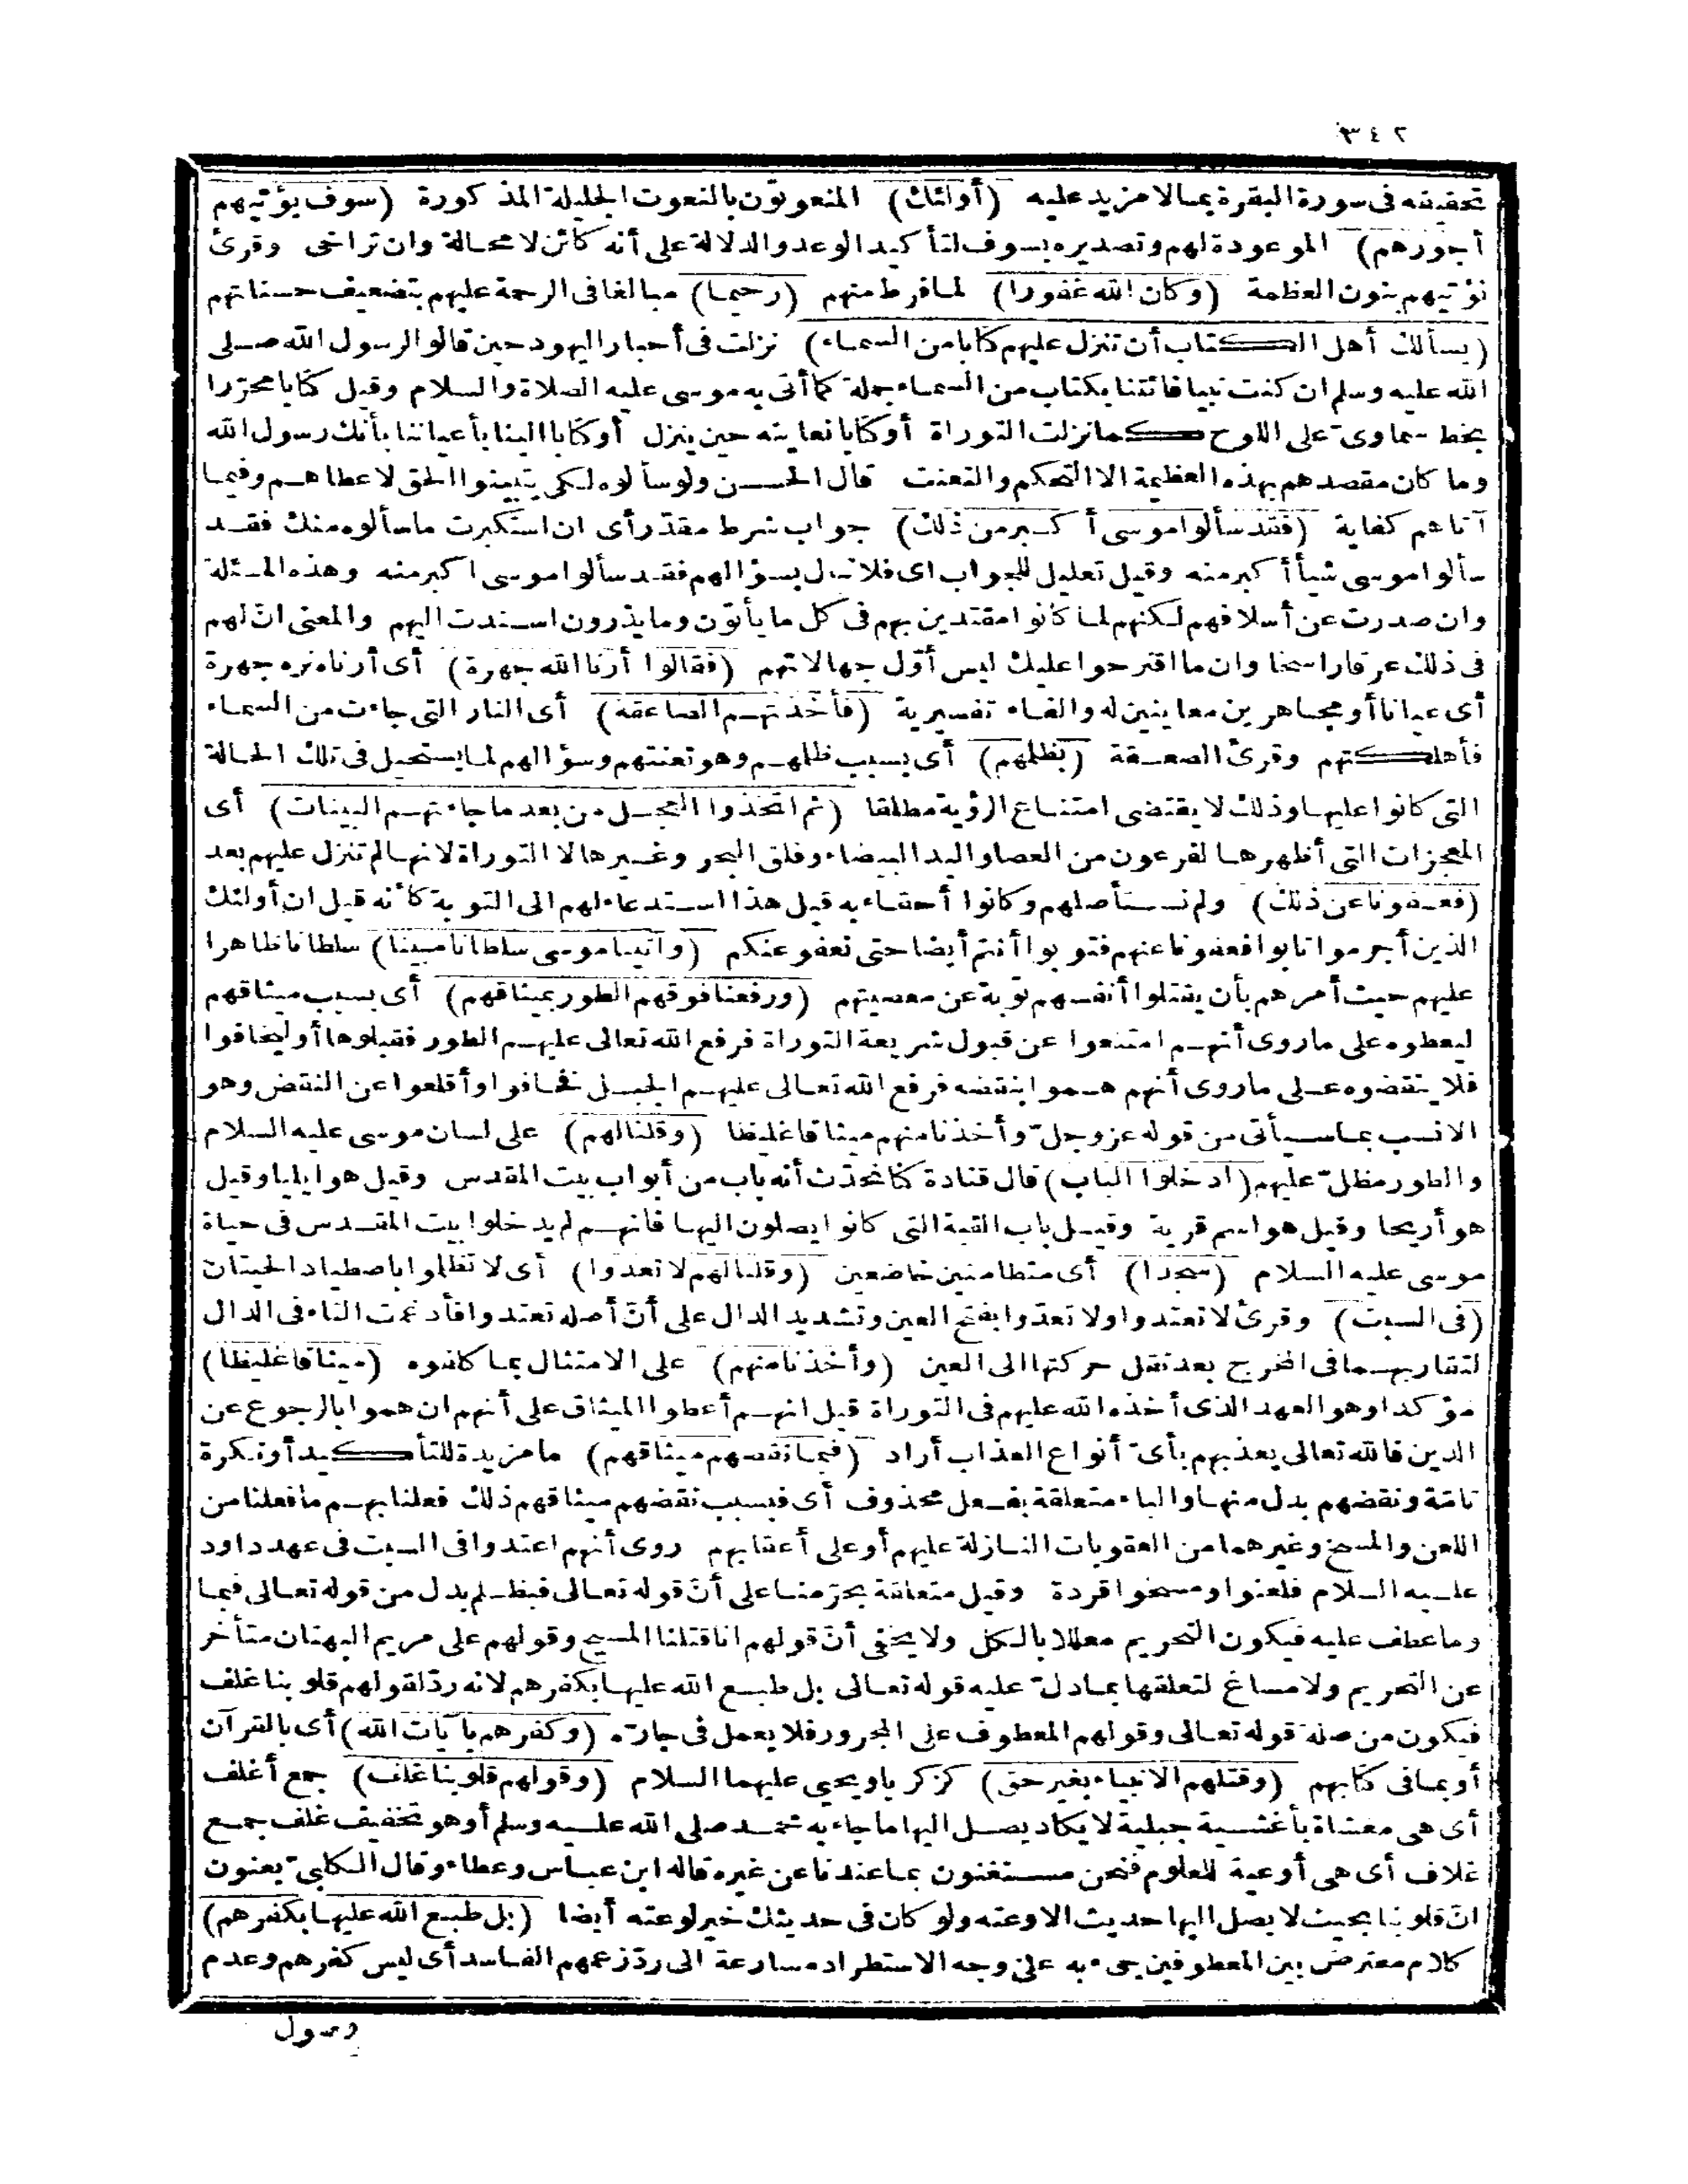 ٣٤٢
تحقيقه فى سورة البقرة بما لا مزيد عليه (أولئك) المنعوتون بالنعوت الجليلة المذكورة (سوف يؤتيهم
أجورهم) الموعودة لهم وتصديره بسوف لتأكيد الوعد والدلالة على أنه كائن لا محالة وان تراخى وقرئ
نؤتيهم بنون العظمة (وكان الله غفورا) لما فرط منهم (رحيما) مبالغا فى الرحمة عليهم بتضعيف حسناتهم
(يسألك أهل الكتاب أن تنزل عليهم كتابا من السماء) نزلت فى أحبار اليهود حين قالوا لرسول الله صلى
الله عليه وسلم ان كنت نبيا فائتنا بكتاب من السماء جملة كما أتى به موسى عليه الصلاة والسلام وقيل كتابا محرّرا
بخط سماوىّ على اللوح كما نزلت التوراة أو كتابا نعاينه حين ينزل أو كتابا الينا بأعياننا بأنك رسول الله
وما كان مقصدهم بهذه العظيمة الا التحكم والتعنت قال الحسن ولو سألوه لكى يتبينوا الحق لاعطاهم وفيما
آتاهم كفاية (فقد سألوا موسى أكبر من ذلك) جواب شرط مقدّر أى ان استكبرت ما سألوه منك فقد
سألوا موسى شيأ أكبر منه وقيل تعليل للجواب اى فلا تبال بسؤالهم فقد سألوا موسى اكبر منه وهذه المسئلة
وان صدرت عن أسلافهم لكنهم لما كانوا مقتدين بهم فى كل ما يأتون وما يذرون اسندت اليهم والمعنى انّ لهم
فى ذلك عرقا راسخا وان ما اقترحوا عليك ليس أوّل جهالاتهم (فقالوا أرنا الله جهرة) أى أرناه نره جهرة
أى عيانا أو مجاهرين معاينين له والفاء تفسيرية (فأخذتهم الصاعقة) أى النار التى جاءت من السماء
فأهلكتهم وقرئ الصعقة (بظلمهم) أى بسبب ظلمهم وهو تعنتهم وسؤالهم لما يستحيل فى تلك الحالة
التى كانوا عليها وذلك لا يقتضى امتناع الرؤية مطلقا (ثم اتخذوا العجل من بعد ما جاءتهم البينات) أى
المعجزات التى أظهرها لفرعون من العصا واليد البيضاء وفلق البحر وغيرها لا التوراة لانها لم تنزل عليهم بعد
(فعفونا عن ذلك) ولم نستأصلهم وكانوا أحقاء به قيل هذا استدعاء لهم الى التوبة كأنه قيل ان أولئك
الذين أجرموا تابوا فعفونا عنهم فتوبوا أنتم أيضا حتى نعفو عنكم (وآتينا موسى سلطانا مبينا) سلطانا ظاهرا
عليهم حيث أمرهم بأن يقتلوا أنفسهم توبة عن معصيتهم (ورفعنا فوقهم الطور بميثاقهم) أى بسبب ميثاقهم
ليعطوه على ما روى أنهم امتنعوا عن قبول شريعة التوراة فرفع الله تعالى عليهم الطور فقبلوها أو ليخافوا
فلا ينقضوه على ما روى أنهم هموا بنقضه فرفع الله تعالى عليهم الجبل فخافوا وأقلعوا عن النقض وهو
الانسب بما سيأتى من قوله عز وجلّ وأخذنا منهم ميثاقا غليظا (وقلنا لهم) على لسان موسى عليه السلام
والطور مظلّ عليهم (ادخلوا الباب) قال قتادة كنا نحدّث أنه باب من أبواب بيت المقدس وقيل هو ايليا وقيل
هو أريحا وقيل هو اسم قرية وقيل باب القبة التى كانوا يصلون اليها فانهم لم يدخلوا بيت المقدس فى حياة
موسى عليه السلام (سجدا) أى متطامنين خاضعين (وقلنا لهم لا تعدوا) أى لا تظلموا باصطياد الحيتان
(فى السبت) وقرئ لا تعتدوا ولا تعدّوا بفتح العين وتشديد الدال على أنّ أصله تعتدوا فأدغمت التاء فى الدال
لتقاربهما فى المخرج بعد نقل حركتها الى العين (وأخذنا منهم) على الامتثال بما كلفوه (ميثاقا غليظا)
مؤكدا وهو العهد الذى أخذه الله عليهم فى التوراة قيل انهم أعطوا الميثاق على أنهم ان هموا بالرجوع عن
الدين فالله تعالى يعذبهم بأىّ أنواع العذاب أراد (فبما نقضهم ميثاقهم) ما مزيدة للتأكيد أو نكرة
تامّة ونقضهم بدل منها والباء متعلقة بفعل محذوف أى فبسبب نقضهم ميثاقهم ذلك فعلنا بهم ما فعلنا من
اللعن والمسخ وغيرهما من العقوبات النازلة عليهم أو على أعقابهم روى أنهم اعتدوا فى السبت فى عهد داود
عليه السلام فلعنوا ومسخوا قردة وقيل متعلقة بحرّمنا على أنّ قوله تعالى فبظلم بدل من قوله تعالى فبما
وما عطف عليه فيكون التحريم معللا بالكل ولا يخفى أنّ قولهم انا قتلنا المسيح وقولهم على مريم البهتان متأخر
عن التحريم ولا مساغ لتعلقها بما دلّ عليه قوله تعالى بل طبع الله عليها بكفرهم لانه ردّ لقولهم قلوبنا غلف
فيكون من صلة قوله تعالى وقولهم المعطوف على المجرور فلا يعمل فى جارّه (وكفرهم بآيات الله) أى بالقرآن
أو بما فى كتابهم (وقتلهم الانبياء بغير حق) كزكريا ويحيى عليهما السلام (وقولهم قلوبنا غلف) جمع أغلف
أى هى مغشاة بأغشية جبلية لا يكاد يصل اليها ما جاء به محمد صلى الله عليه وسلم أو هو تخفيف غلف جمع
غلاف أى هى أوعية للعلوم فنحن مستغنون بما عندنا عن غيره قاله ابن عباس وعطاء وقال الكلبىّ يعنون
انّ قلوبنا بحيث لا يصل اليها حديث الا وعته ولو كان فى حديثك خير لوعته أيضا (بل طبع الله عليها بكفرهم)
كلام معترض بين المعطوفين جىء به على وجه الاستطراد مسارعة الى ردّ زعمهم الفاسد أى ليس كفرهم وعدم
وصول